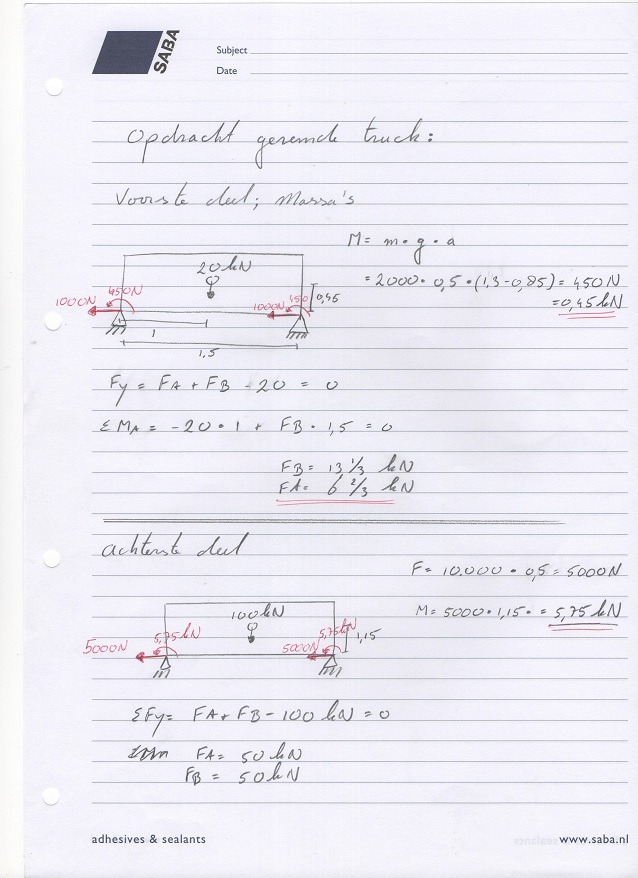 SABA
Subject
Date
Opdracht geremde truck:
Voorste deel; Massa's
M= m·g·a
20kN
= 2000 · 0,5 · (1,3-0,85) = 450N
= 0,45 kN
1000N
450N
1000N
450
0,45
1
1,5
Fy = FA + FB - 20 = 0
ΣMA = -20 · 1 + FB · 1,5 = 0
FB = 13 1/3 kN
FA = 6 2/3 kN
achterste deel
F = 10.000 · 0,5 = 5000N
100kN
M= 5000 · 1,15 · = 5,75 kN
5000N
5,75kN
5000N
5,75kN
1,15
ΣFy = FA + FB - 100 kN = 0
FA = 50 kN
FB = 50 kN
adhesives & sealants
www.saba.nl